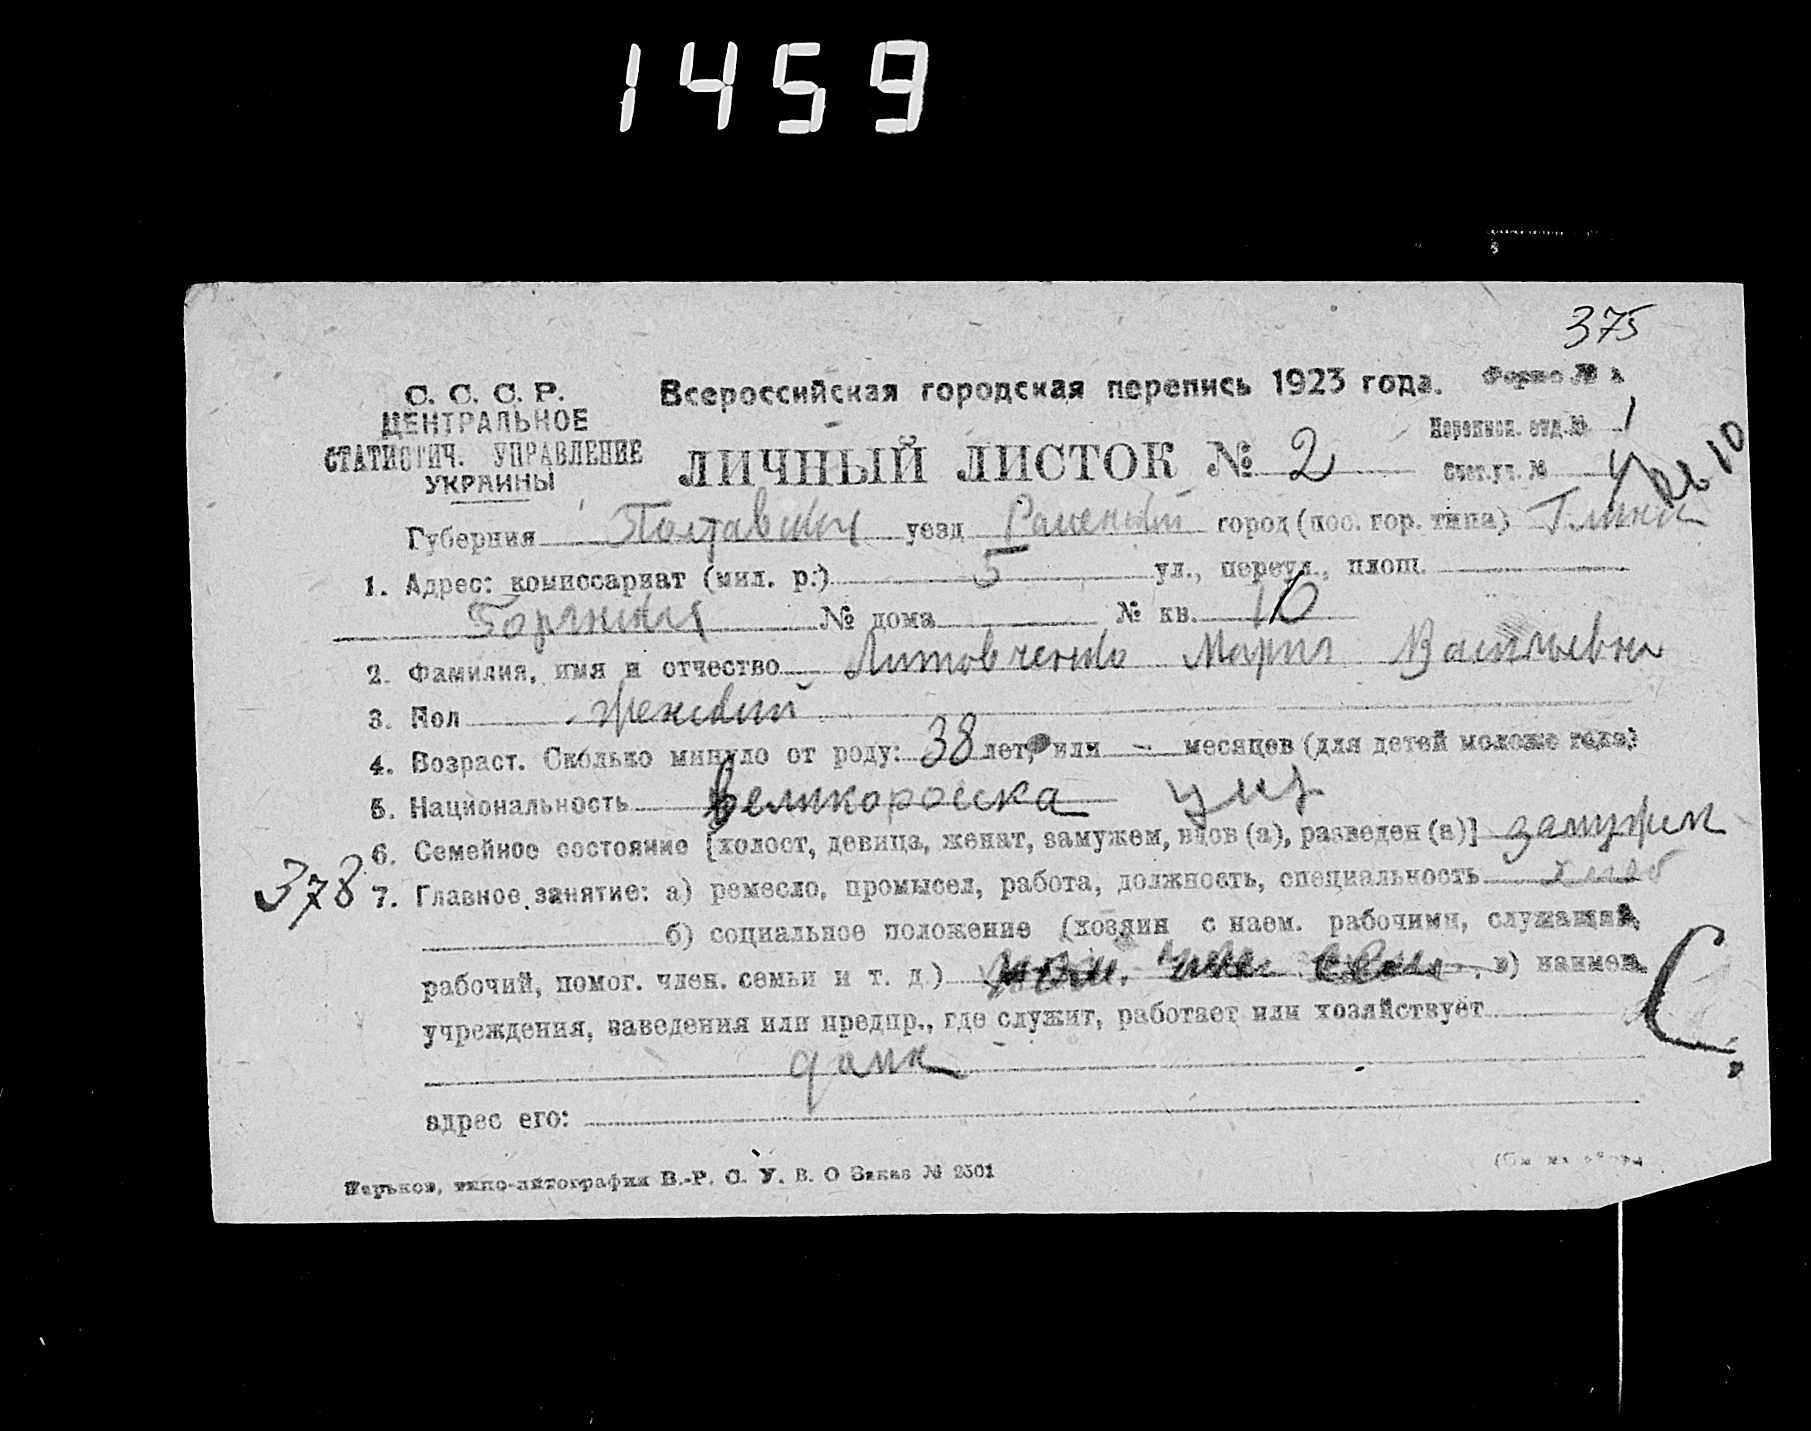 1459
375
С. С. С. Р.
ЦЕНТРАЛЬНОЕ
СТАТИСТИЧ. УПРАВЛЕНИЕ
УКРАИНЫ
Всероссийская городская перепись 1923 года.
Форма №
ЛИЧНЫЙ ЛИСТОК № 2
Переписн. отд. № 1
Счет. уч. № 4
кв 10
Губерния Полтавской уезд Роменский город (пос. гор. типа) Глинск
1. Адрес: комиссариат (мил. р.) 5 ул., переул., площ.
№ дома № кв. 10
2. Фамилия, имя и отчество Литовченко Мария Васильевна
3. Пол женский
4. Возраст. Сколько минуло от роду: 38 лет, или - месяцев (для детей моложе года)
5. Национальность великоросска укр
6. Семейное состояние [холост, девица, женат, замужем, вдов (а), разведен (а)] замужем
378
7. Главное занятие: а) ремесло, промысел, работа, должность, специальность
б) социальное положение (хозяин с наем. рабочими, служащий,
рабочий, помог. член. семьи и т. д.) пом. член семьи в) наимен.
учреждения, заведения или предпр., где служит, работает или хозяйствует
С.
адрес его:
Харьков, типо-литография В.-Р. С. У. В. О Заказ № 2501